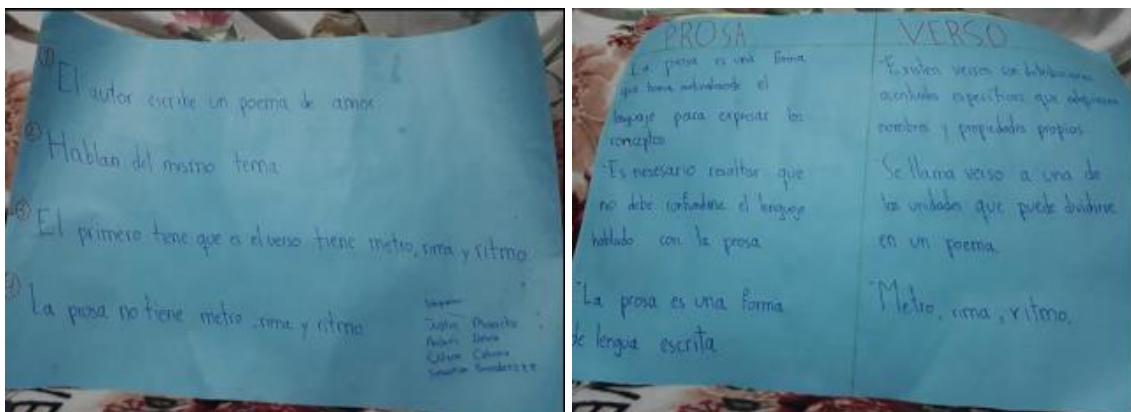 ① El autor escribe un poema de amor
② Hablan del mismo tema
③ El primero tiene que es el verso tiene metro, rima y ritmo
④ La prosa no tiene metro, rima y ritmo
PROSA
La prosa es una forma
que toma naturalmente el
lenguaje para expresar los
conceptos
-Es nesesario resaltar que
no debe confundirse el lenguaje
hablado con la prosa
-La prosa es una forma
de lengua escrita
VERSO
-Existen versos con
acentuales específicas que adquieren
nombres y propiedades propios.
Se llama verso a una de
las unidades que puede dividirse
en un poema.
-Metro, rima, ritmo.